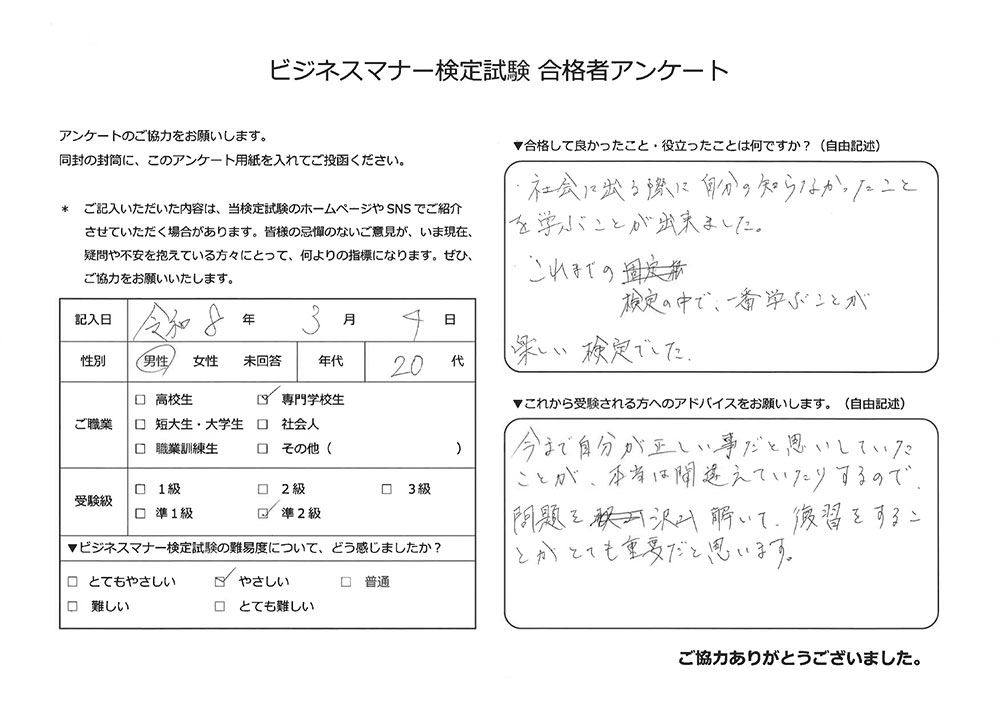 ビジネスマナー検定試験 合格者アンケート
アンケートのご協力をお願いします。
同封の封筒に、このアンケート用紙を入れてご投函ください。
＊ ご記入いただいた内容は、当検定試験のホームページやSNSでご紹介
させていただく場合があります。皆様の忌憚のないご意見が、いま現在、
疑問や不安を抱えている方々にとって、何よりの指標になります。ぜひ、
ご協力をお願いいたします。
記入日 令和 8 年 3 月 4 日
性別 男性 女性 未回答 年代 20 代
ご職業
□ 高校生 ☑ 専門学校生
□ 短大生・大学生 □ 社会人
□ 職業訓練生 □ その他（ ）
受験級
□ 1級 □ 2級 □ 3級
□ 準1級 ☑ 準2級
▼ビジネスマナー検定試験の難易度について、どう感じましたか？
□ とてもやさしい ☑ やさしい □ 普通
□ 難しい □ とても難しい
▼合格して良かったこと・役立ったことは何ですか？（自由記述）
・社会に出る際に自分の知らなかったこと
を学ぶことが出来ました。
・これまでの
検定の中で、一番学ぶことが
楽しい検定でした.
▼これから受験される方へのアドバイスをお願いします。（自由記述）
今まで自分が正しい事だと思いしていた
ことが、本当は間違えていたりするので、
問題を 沢山 解いて、復習をするこ
とがとても重要だと思います。
ご協力ありがとうございました。